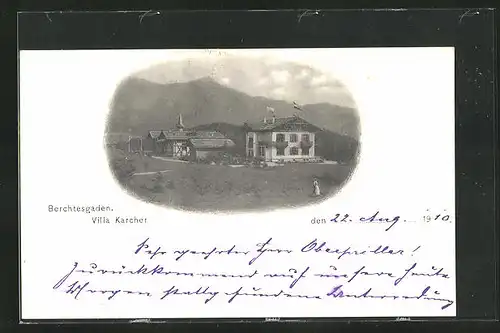 Berchtesgaden.
Villa Karcher
den 22. Aug. 1910.
Sehr geehrter Herr Oberpriller!
Zurückkommend auf unsere heute
Morgen stattgefundene Unterredung